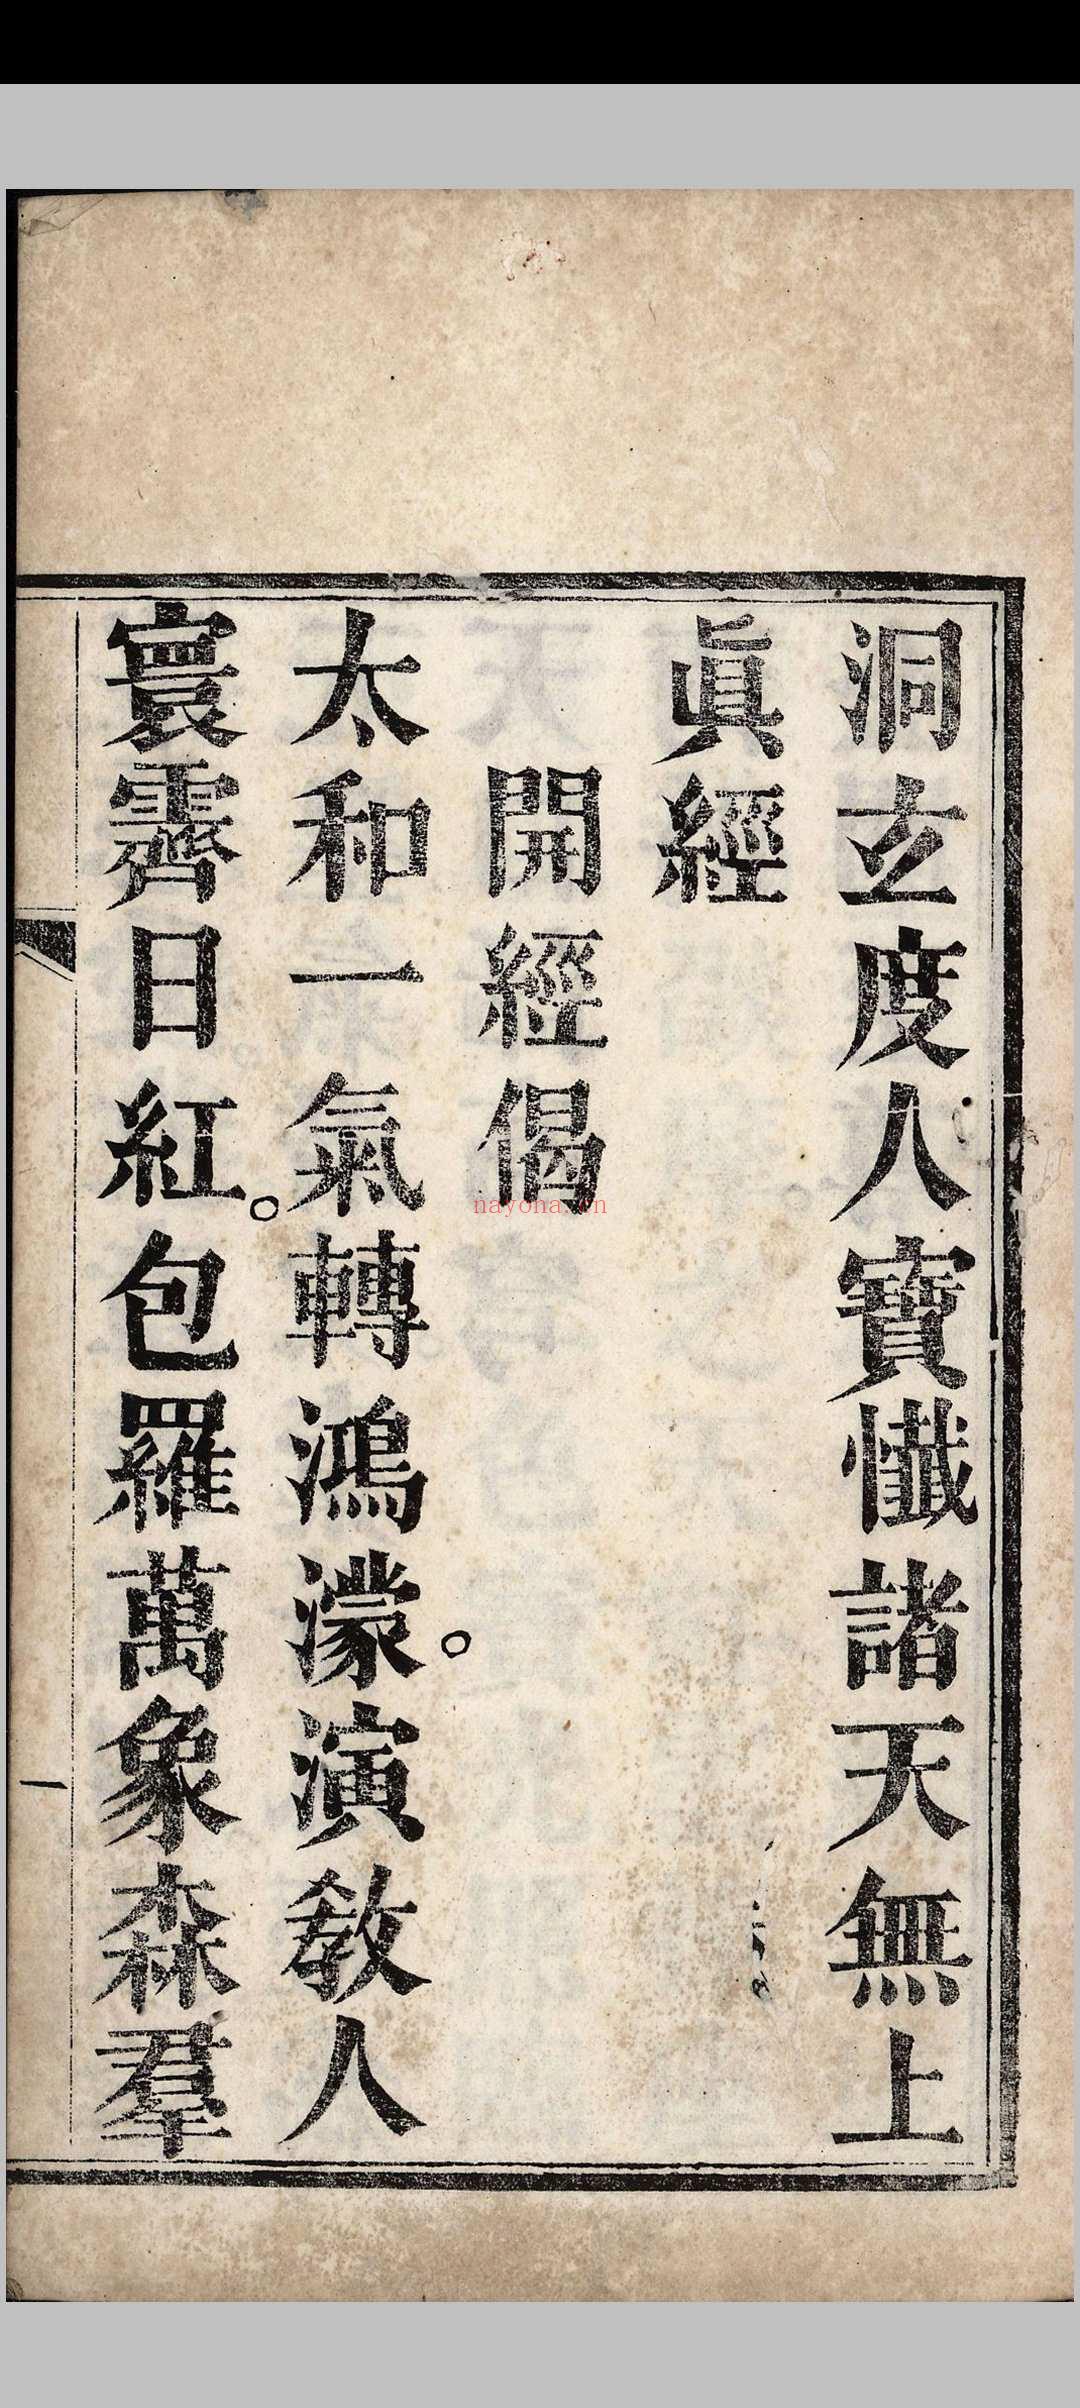 洞玄度人寶懺諸天無上
眞經
開經偈
太和一氣轉鴻濛。演敎人
寰霽日紅。包羅萬象森羣
一
nayona.cn